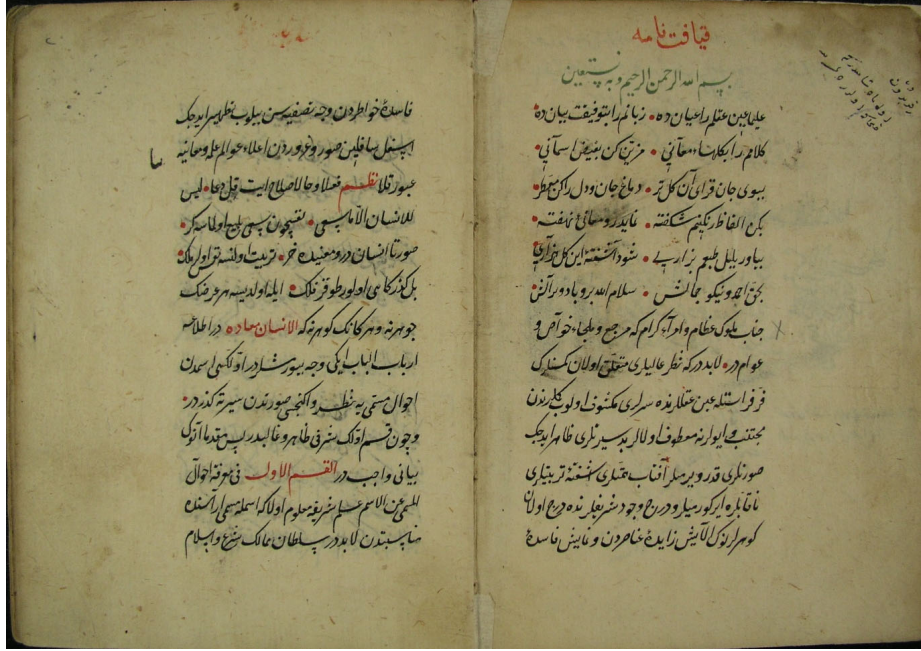 قيافت نامه
بسم الله الرحمن الرحيم وبه نستعين
علیما عین عقلم را عیان ده • زبانم را بتوفیقت بیان ده
کلامم را بکلهاء معانی • مزین کن بفیض آسمانی
ببوی جان فزای آن کل تر • دماغ جان ودل را کن معطر
بکن الفاظ رنکینم شکفته • نماید رو معانئ نهفته
بیاور بلبل طبعم بزاری • شود آشفتۀ این کل هزاری
بحق احمد ونیکو جمالش • سلام الله برو باد و بر آلش
جناب ملوک عظام وامراء کرام که مرجع وملجاء خواص و
عوام در • لابد در که نظر عالیلری متعلق اولان کسنلرک
فر فراستله عین عقللرنده سرلری مکشوف اولوب کلبرندن
مجتنب وایولرنه معطوف اولالر بد سیرتلری ظاهر ایدجک
صورتلری قدر ویرمیلر آفتاب عقللری اشعۀ تربیتلری
ناقابله ایرکورمیلر ودرج وجود شریفلرنده درج اولان
کوهرلرنوک آلایش زایدۀ عناصردن ونمایش فاسدۀ
فاسدۀ خواطردن وجه تصفیه سن بیلوب تطهیر ایدجک
اسفل سافلین صور وغروردن اعلاء عوالم علم ومعانیه
عبور قلا نظم فعلا وحالا صلاح ایت قل دعا • لیس
للانسان الا ما سعی •
صورتا انسان در ومعنیده خر • تربیت اولنسه
بل کذرکاهی اولور طوقز فلک • ایله اولدیسه هر عرضک
جوهرنه وهر کانک کوهرنه که الانسان معادن در اطلاعه
ارباب الباب ایکی وجه بیورمشلر در اولکسی اسمدن
احوال مسمی یه نظر وایکنجی صورتدن سیرته کذر در •
وچون قسم اولک شرفی ظاهر وغالبدر پس مقدما آنوک
بیانی واجب در القسم الاول فی معرفة احوال
المسمی عن الاسم علم شریفه معلوم اولا که اسمله مسمی اراسنده
مناسبتدن لابد در سلطان ممالک شرع واسلام